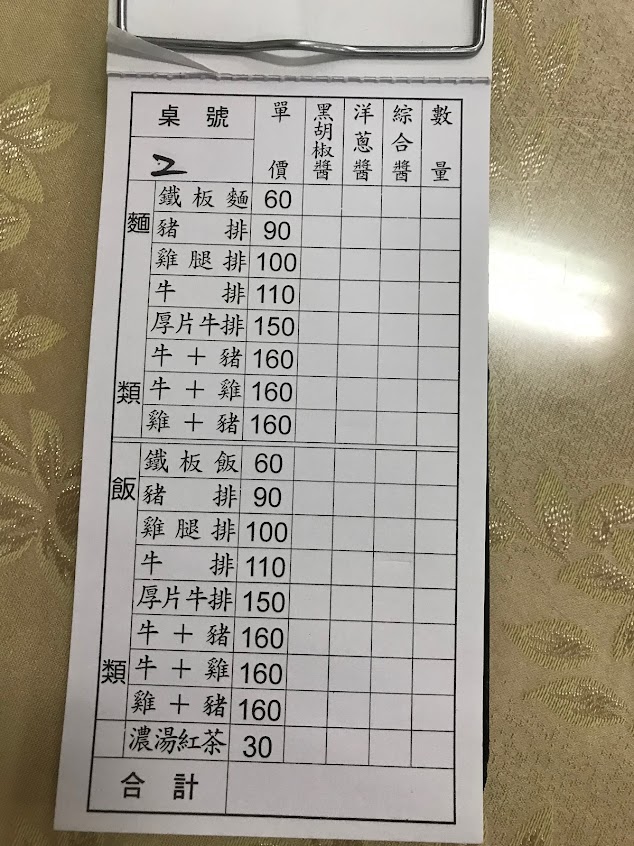 桌號 單價 黑胡椒醬 洋蔥醬 綜合醬 數量
2
麵類
鐵板麵 60
豬排 90
雞腿排 100
牛排 110
厚片牛排 150
牛＋豬 160
牛＋雞 160
雞＋豬 160
飯類
鐵板飯 60
豬排 90
雞腿排 100
牛排 110
厚片牛排 150
牛＋豬 160
牛＋雞 160
雞＋豬 160
濃湯紅茶 30
合計